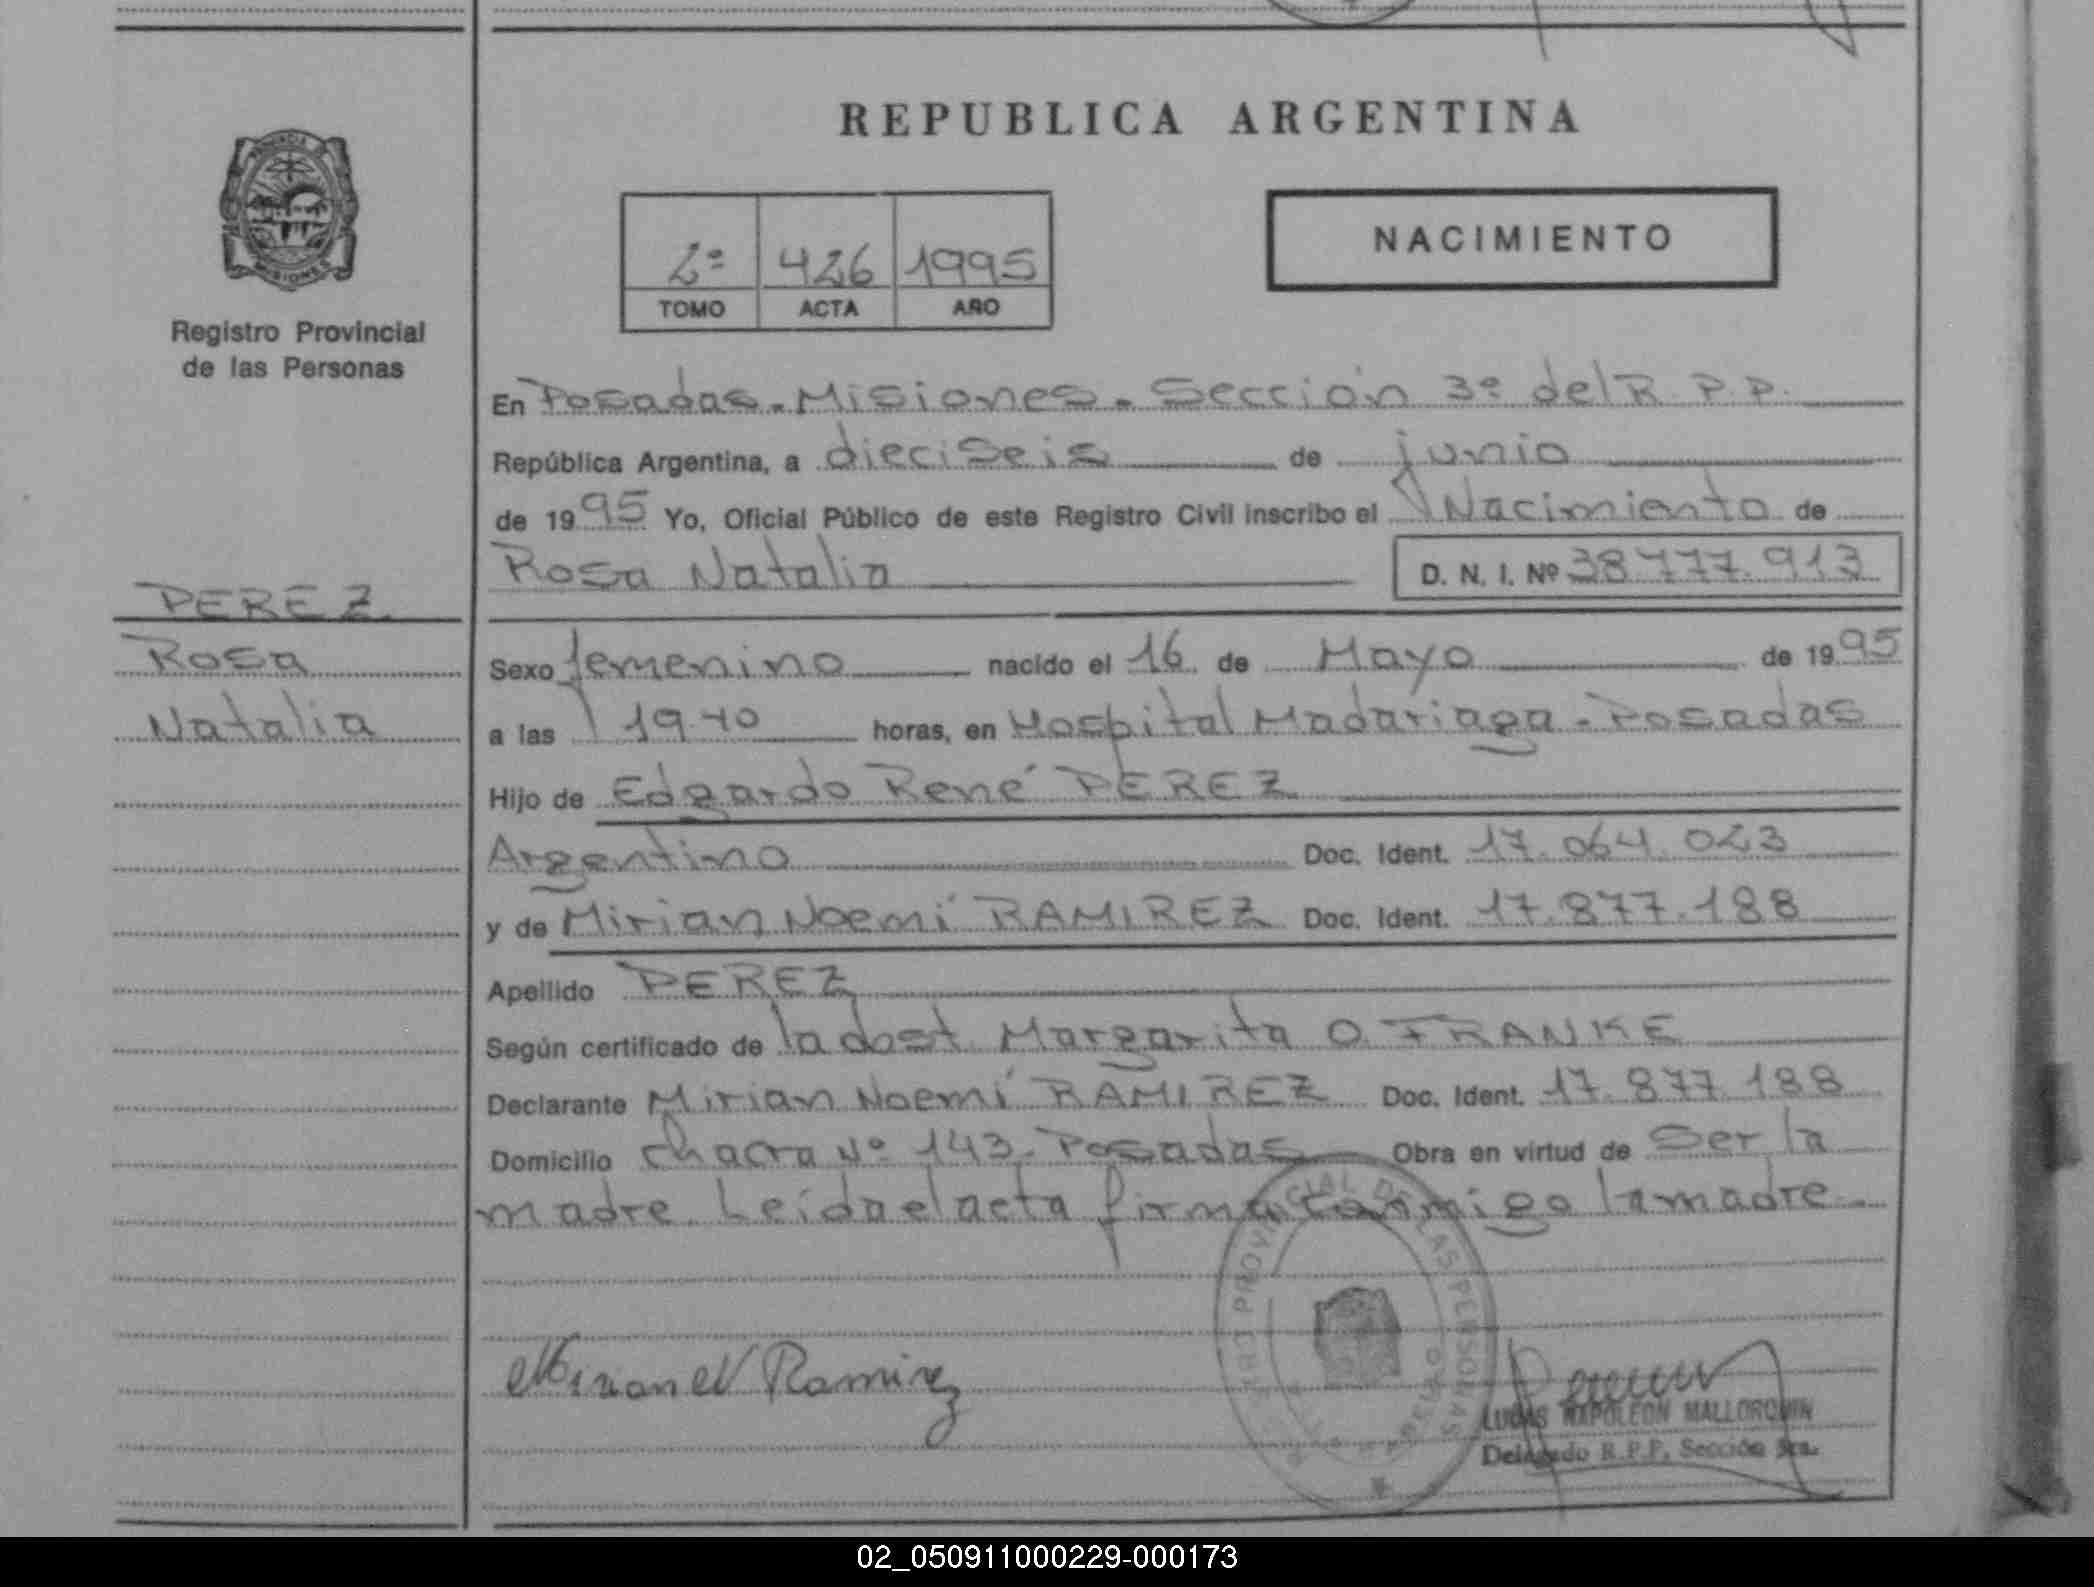 REPUBLICA ARGENTINA
PROVINCIA DE
MISIONES
Registro Provincial
de las Personas
2º 426 1995
TOMO ACTA AÑO
NACIMIENTO
En Posadas-Misiones-Sección 3º del R.P.P.
República Argentina, a dieciseis de junio
de 1995 Yo, Oficial Público de este Registro Civil inscribo el Nacimiento de
Rosa Natalia D. N. I. Nº 38.777.913
PEREZ
Rosa
Natalia
Sexo femenino nacido el 16 de Mayo de 1995
a las 19.40 horas, en Hospital Madariaga-Posadas
Hijo de Edgardo René PEREZ
Argentino Doc. Ident. 17.064.023
y de Mirian Noemí RAMIREZ Doc. Ident. 17.877.188
Apellido PEREZ
Según certificado de la obst. Margarita O. FRANKE
Declarante Mirian Noemí RAMIREZ Doc. Ident. 17.877.188
Domicilio Chacra Nº 143-Posadas Obra en virtud de Ser la
madre. Leída el acta firma conmigo la madre.
PROVINCIAL DE LAS PERSONAS
Mirian N Ramirez
LUCAS NAPOLEON MALLORQUIN
Delegado R.P.P. Sección 3ra.
02_050911000229-000173